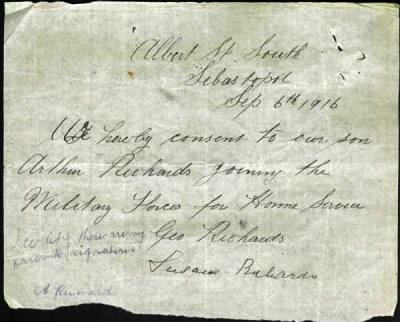 Albert St. South
Sebastopol
Sep 6th 1916
We hereby consent to our son
Arthur Richards joining the
Military Forces for Home Service
Geo Richards
Susan Richards
I certify these are my
parents signatures
A Richards